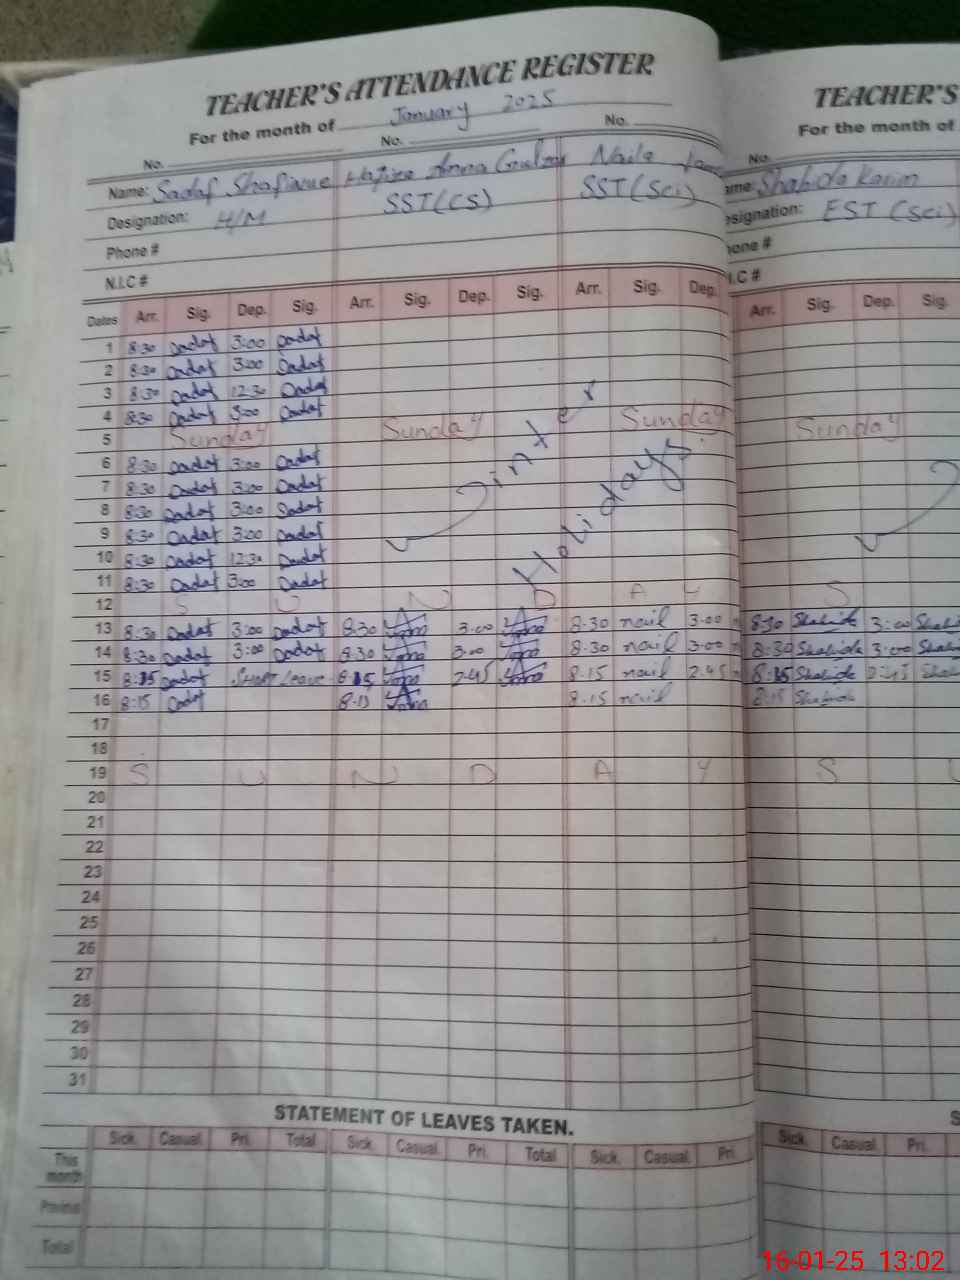 TEACHER'S ATTENDANCE REGISTER
For the month of January 2025
No. No. No.
Name: Sadaf Shafique Hafiza Amna Gulzar Naila
Designation: H/M SST(CS) SST(Sci)
Phone #
N.I.C #
Dates Arr. Sig. Dep. Sig. Arr. Sig. Dep. Sig. Arr. Sig. Dep.
1 8:30 Sadaf 3:00 Sadaf
2 8:30 Sadaf 3:00 Sadaf
3 8:30 Sadaf 12:30 Sadaf
4 8:30 Sadaf 3:00 Sadaf
5 Sunday Sunday Sunday
6 8:30 Sadaf 3:00 Sadaf
7 8:30 Sadaf 3:00 Sadaf
8 8:30 Sadaf 3:00 Sadaf
9 8:30 Sadaf 3:00 Sadaf
10 8:30 Sadaf 12:30 Sadaf
11 8:30 Sadaf 3:00 Sadaf
Winter
Holidays.
12 S U N D A Y
13 8:30 Sadaf 3:00 Sadaf 8:30 3:00 8.30 nail 3.00
14 8:30 Sadaf 3:00 Sadaf 8:30 3:00 8.30 nail 3.00
15 8:15 Sadaf Short Leave 8:15 2:45 8.15 nail 2.45
16 8:15 Sadaf 8:15 8.15 nail
17
18
19 S U N D A Y
20
21
22
23
24
25
26
27
28
29
30
31
STATEMENT OF LEAVES TAKEN.
Sick. Casual Pri. Total Sick. Casual Pri. Total Sick. Casual Pri.
This month
Previous
Total
TEACHER'S
For the month of
No.
Name: Shahida Karim
Designation: EST (Sci)
Phone #
N.I.C #
Arr. Sig. Dep. Sig.
Sunday
S
8:30 Shahida 3:00
8:30 Shahida 3:00
8:15 Shahida 2:45
8:15 Shahida
S U
S
Sick. Casual Pri.
16-01-25 13:02